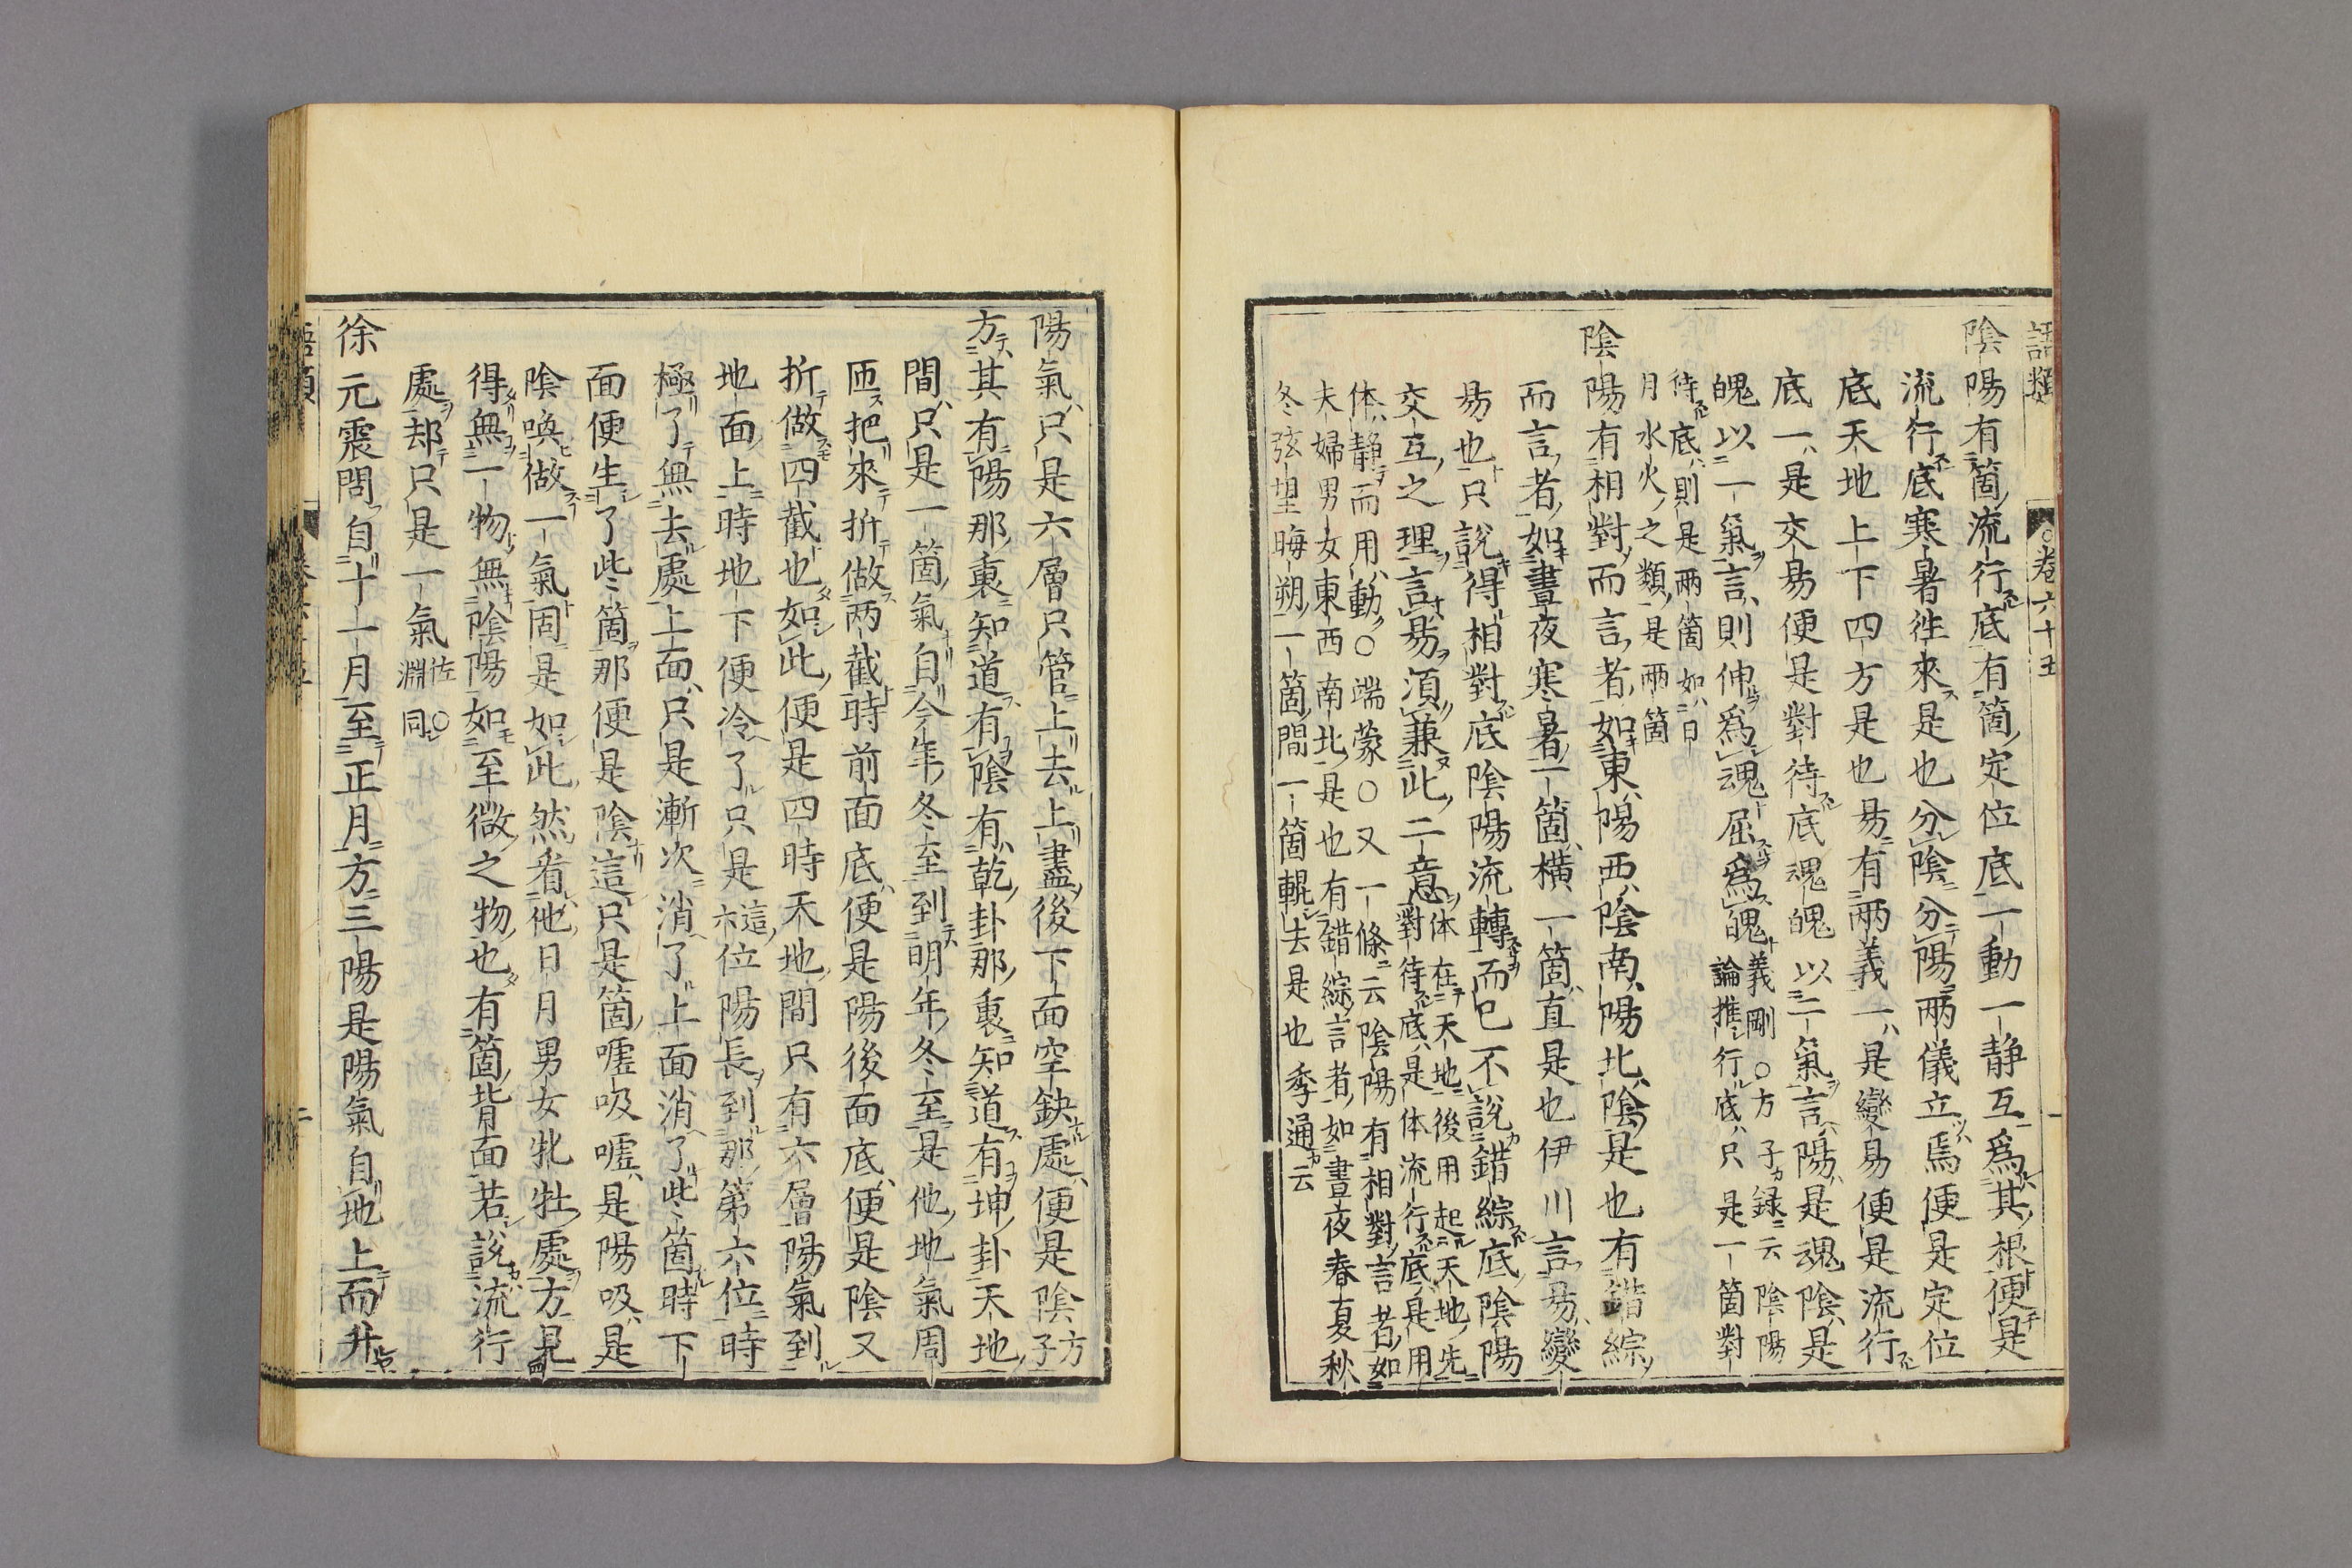 語類 卷六十五
陰陽有箇流行底有箇定位底一動一靜互爲其根便是
流行底寒暑徃來是也分陰分陽兩儀立焉便是定位
底天地上下四方是也易有兩義一是變易便是流行
底一是交易便是對待底魂魄以二氣言陽是魂陰是
魄以一氣言則伸爲魂屈爲魄義剛○方子録云陰陽
論推行底只是一箇對
待底則是兩箇如日
月水火之類是兩箇
陰陽有相對而言者如東陽西陰南陽北陰是也有錯綜
而言者如晝夜寒暑一箇橫一箇直是也伊川言易變
易也只說得相對底陰陽流轉而已不說錯綜底陰陽
交互之理言易須兼此二意体在天地後用起天地先
對待底是体流行底是用
体靜而用動○端蒙○又一條云陰陽有相對言者如
夫婦男女東西南北是也有錯綜言者如晝夜春夏秋
冬弦望晦朔一箇間一箇輥去是也季通云
陽氣只是六層只管上去上盡後下面空缺處便是陰方
子
方其有陽那裏知道有陰有乾卦那裏知道有坤卦天地
間只是一箇氣自今年冬至到明年冬至是他地氣周
匝把來折做兩截時前面底便是陽後面底便是陰又
折做四截也如此便是四時天地間只有六層陽氣到
地面上時地下便冷了只是這
六位陽長到那第六位時
極了無去處上面只是漸次消了上面消了些箇時下
面便生了些箇那便是陰這只是箇噓吸噓是陽吸是
陰喚做一氣固是如此然看他日月男女牝牡處方見
得無一物無陰陽如至微之物也有箇背面若說流行
處却只是一氣佐○
淵同
徐元震問自十一月至正月方三陽是陽氣自地上而升